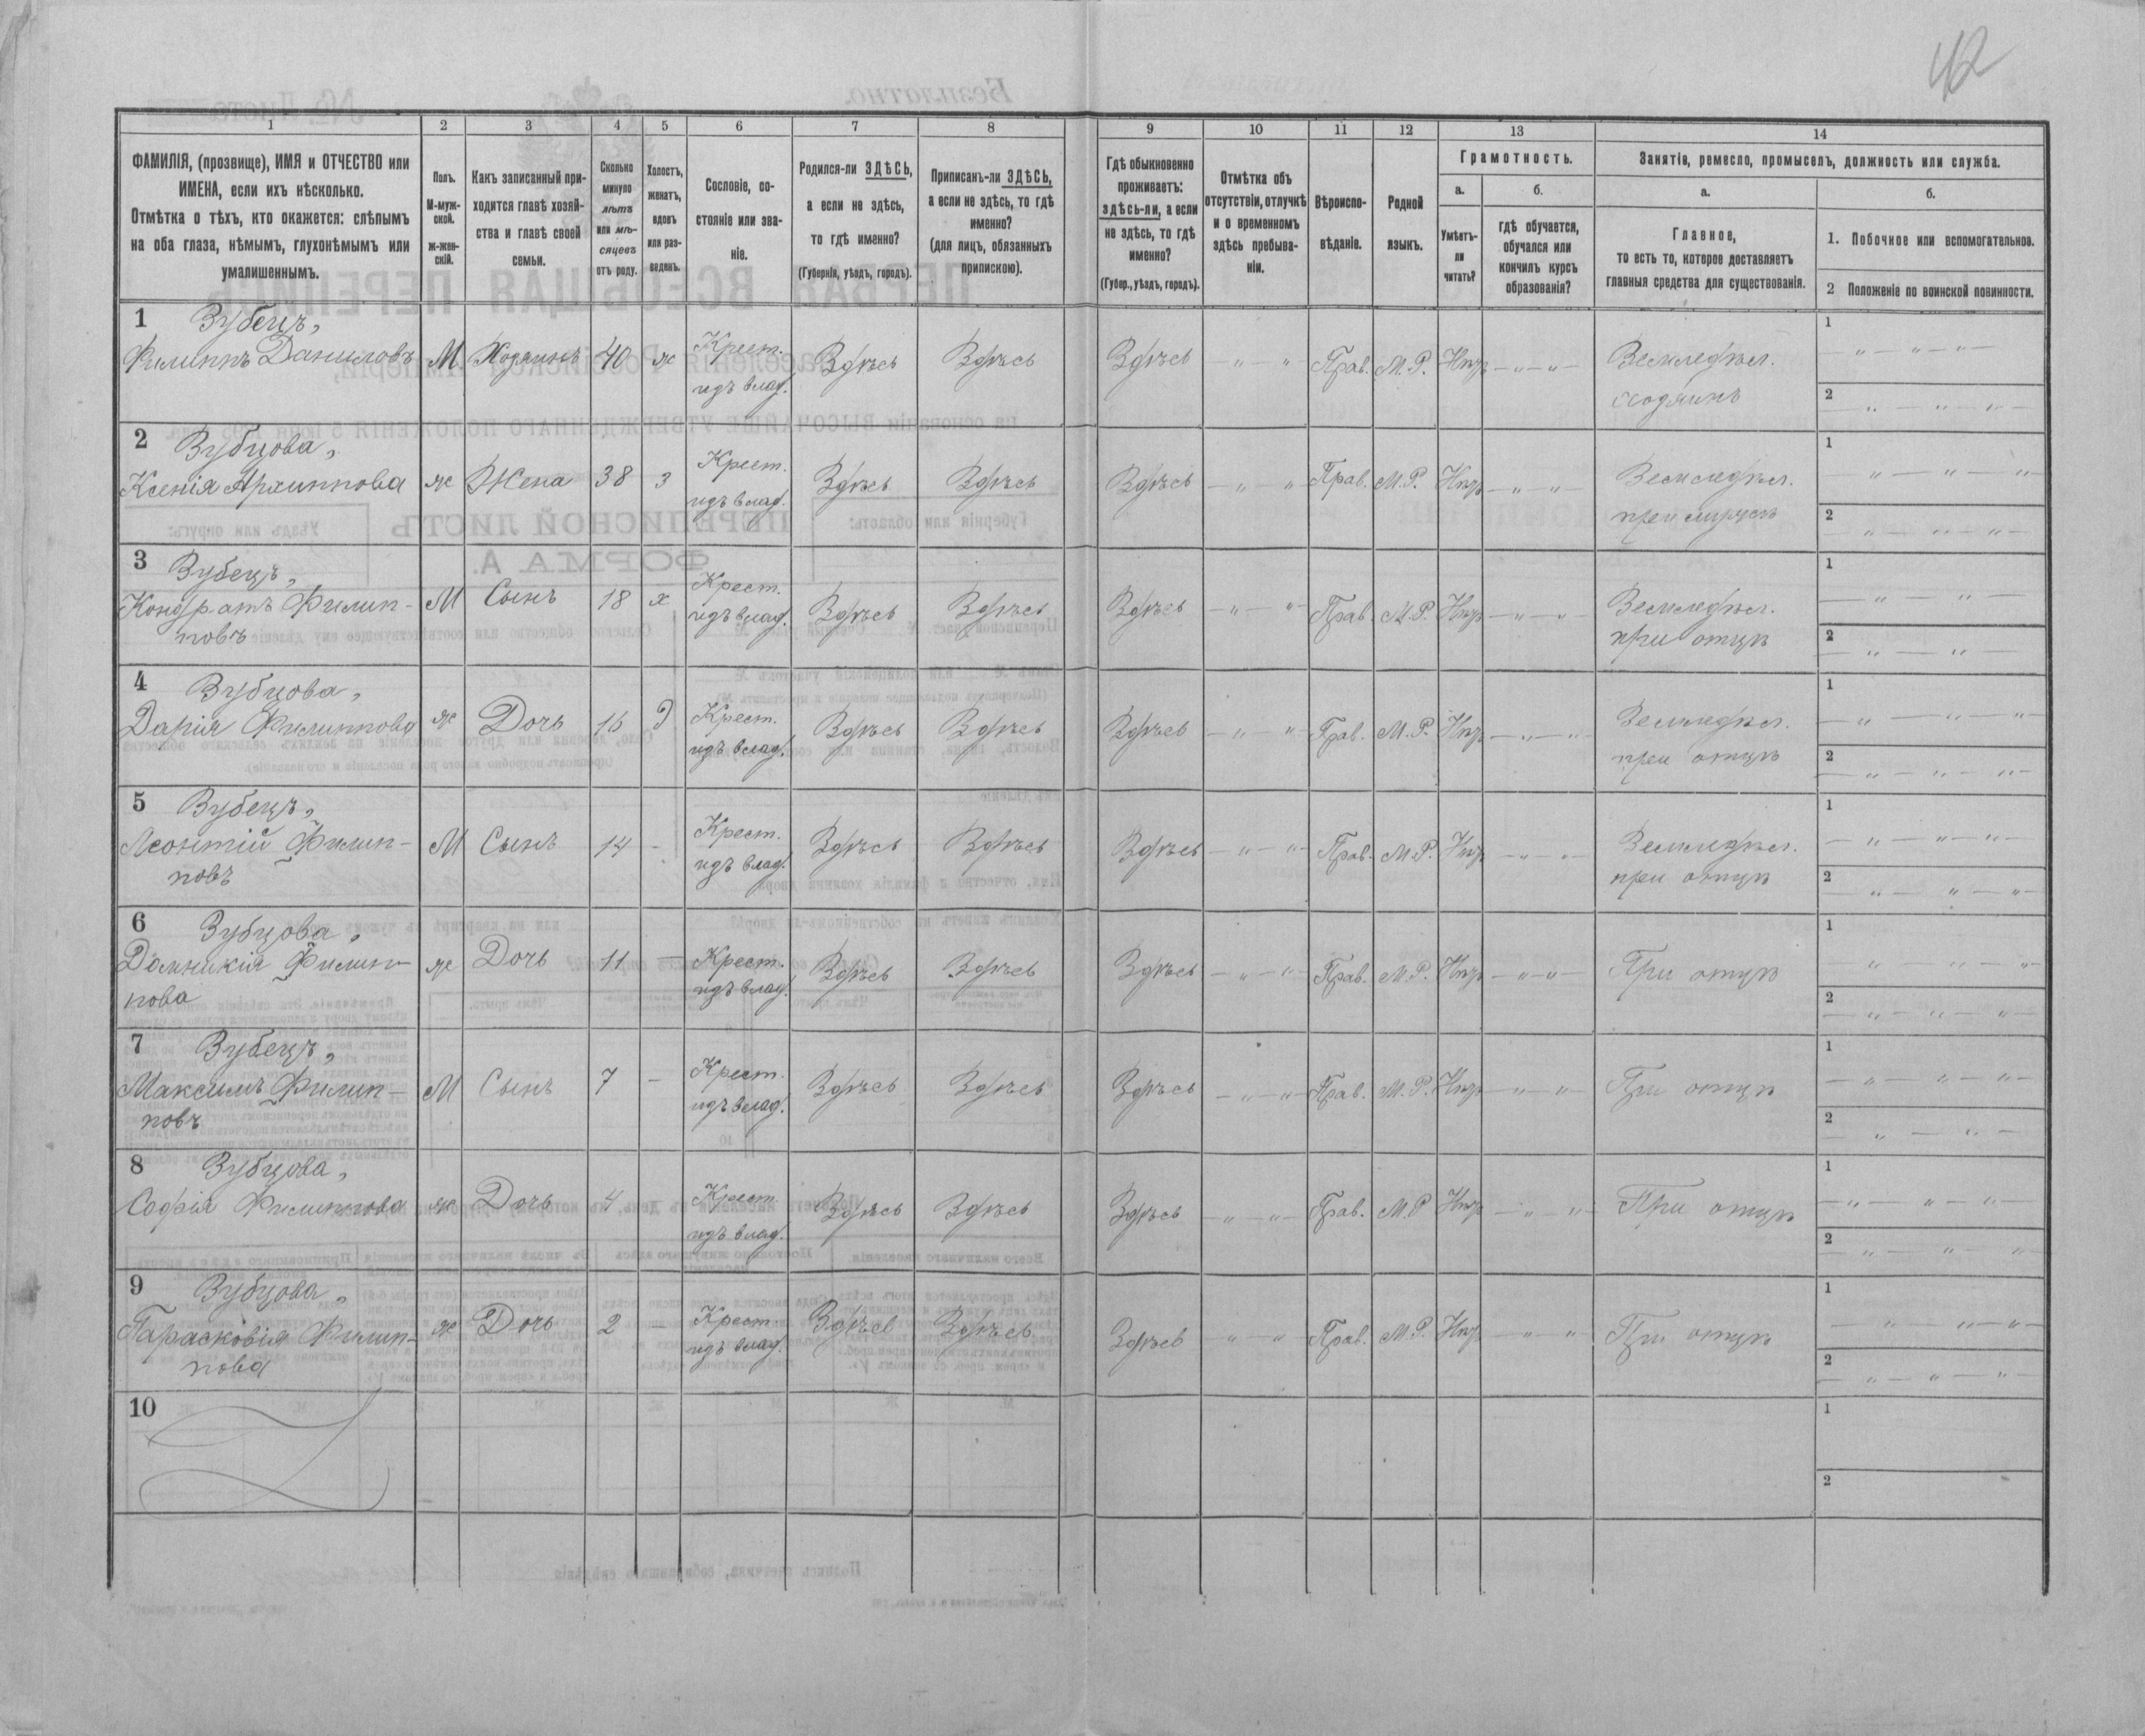 42
1 2 3 4 5 6 7 8 9 10 11 12 13 14
ФАМИЛІЯ, (прозвище), ИМЯ и ОТЧЕСТВО или
ИМЕНА, если ихъ нѣсколько.
Отмѣтка о тѣхъ, кто окажется: слѣпымъ
на оба глаза, нѣмымъ, глухонѣмымъ или
умалишеннымъ.
Полъ.
М-муж-
ской.
ж-жен-
скій.
Какъ записанный при-
ходится главѣ хозяй-
ства и главѣ своей
семьи.
Сколько
минуло
лѣтъ
или мѣ-
сяцевъ
отъ роду.
Холостъ,
женатъ,
вдовъ
или раз-
веденъ.
Сословіе, со-
стояніе или зва-
ніе.
Родился-ли ЗДѢСЬ,
а если не здѣсь,
то гдѣ именно?
(Губернія, уѣздъ, городъ).
Приписанъ-ли ЗДѢСЬ,
а если не здѣсь, то гдѣ
именно?
(для лицъ, обязанныхъ
припискою).
Гдѣ обыкновенно
проживаетъ:
здѣсь-ли, а если
не здѣсь, то гдѣ
именно?
(Губер., уѣздъ, городъ).
Отмѣтка объ
отсутствіи, отлучкѣ
и о временномъ
здѣсь пребыва-
ніи.
Вѣроиспо-
вѣданіе.
Родной
языкъ.
Грамотность.
а.
Умѣетъ-
ли
читать?
б.
гдѣ обучается,
обучался или
кончилъ курсъ
образованія?
Занятіе, ремесло, промыселъ, должность или служба.
а.
Главное,
то есть то, которое доставляетъ
главныя средства для существованія.
б.
1. Побочное или вспомогательное.
2 Положеніе по воинской повинности.
1 Зубецъ,
Филиппъ Даниловъ М Хозяинъ 40 ж Крест. Здѣсь Здѣсь Здѣсь — „ — „ Прав. М.Р. Нѣтъ — „ — „ — Земледѣл. 1 „ — „ — „ —
изъ влад. хозяинъ 2 „ — „ — „ —
2 Зубцова,
Ксенія Архиппова ж Жена 38 з Крест. Здѣсь Здѣсь Здѣсь — „ — „ Прав. М.Р. Нѣтъ — „ — „ — Земледѣл. 1 „ — „ — „
изъ влад. при мужѣ 2 — „ — „ — „ —
3 Зубецъ,
Кондратъ Филип- М Сынъ 18 х Крест. Здѣсь Здѣсь Здѣсь — „ — „ Прав. М.Р. Нѣтъ — „ — „ Земледѣл. 1 — „ — „ —
повъ изъ влад. при отцѣ 2 — „ — „ —
4 Зубцова,
Дарія Филиппова ж Дочь 16 д Крест. Здѣсь Здѣсь Здѣсь — „ — „ Прав. М.Р. Нѣтъ — „ — „ Земледѣл. 1 — „ — „ — „
изъ влад. при отцѣ 2 — „ — „ — „ —
5 Зубецъ,
Леонтій Филип- М Сынъ 14 - Крест. Здѣсь Здѣсь Здѣсь — „ — „ Прав. М.Р. Нѣтъ — „ — „ Земледѣл. 1 — „ — „ — „ —
повъ изъ влад. при отцѣ 2 — „ — „ — „ —
6 Зубцова,
Домникія Филип- ж Дочь 11 — Крест. Здѣсь Здѣсь Здѣсь — „ — „ Прав. М.Р. Нѣтъ — „ — „ — При отцѣ 1 „ — „ — „
пова изъ влад. 2 — „ — „ — „
7 Зубецъ,
Максимъ Филип- М Сынъ 7 — Крест. Здѣсь Здѣсь Здѣсь — „ — „ Прав. М.Р. Нѣтъ — „ — „ — При отцѣ 1 — „ — „ — „ —
повъ изъ влад. 2 — „ — „ —
8 Зубцова,
Софія Филиппова ж Дочь 4 - Крест. Здѣсь Здѣсь Здѣсь — „ — „ — Прав. М.Р Нѣтъ — „ — „ При отцѣ 1 — „ — „ — „ —
изъ влад. 2 — „ — „ — „
9 Зубцова,
Парасковія Филип- ж Дочь 2 — Крест. Здѣсь Здѣсь Здѣсь — „ — „ Прав. М.Р. Нѣтъ — „ — „ При отцѣ 1 — „ — „ — „ —
пова изъ влад. 2 — „ — „ — „ —
10 1
2